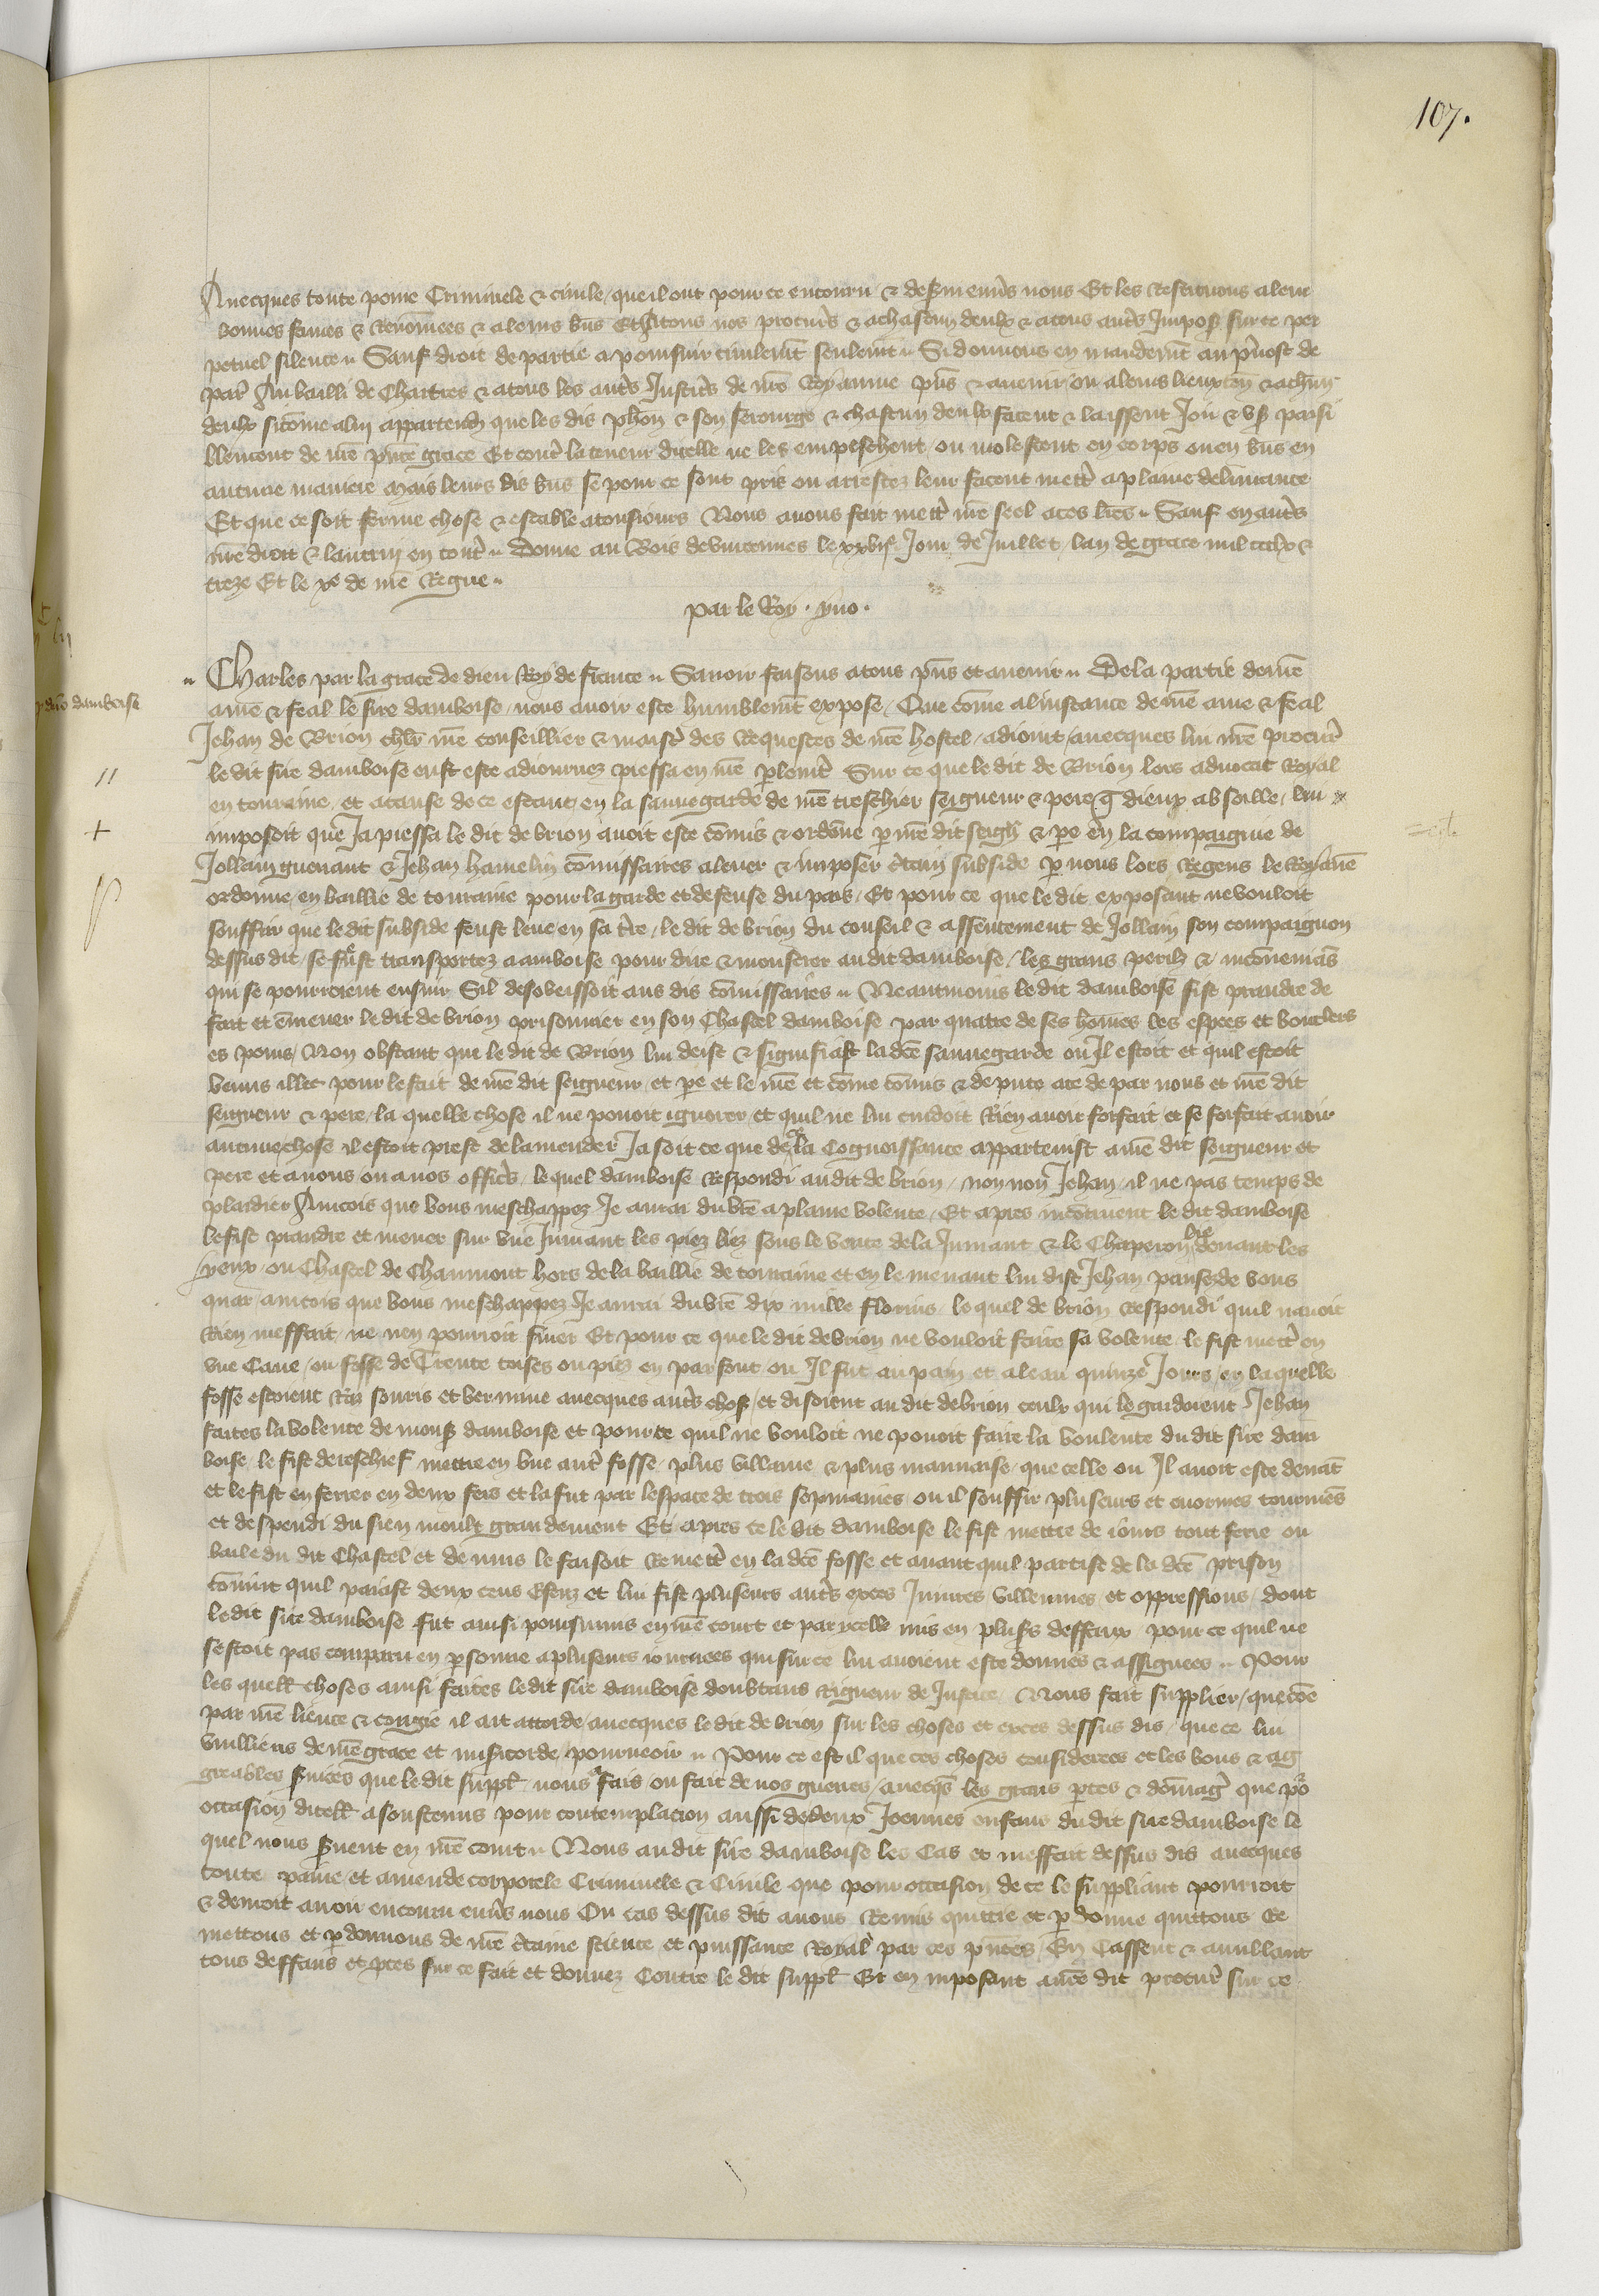 107.
Avecques toute poine Criminele & civile, que il ont pour ce encouru & desservi env̄s nous Et les Restituons a leur
bonnes fames & Renōmees & a leurs biēs Et hitons nos procurs̄ & a chascun deulx & a tous aut̄s Imposō sur ce per
petuel silence Sauf droit de partie a poursuir civilemēt seulemēt Si donnons en mandemēt au p̄vost de
par̄ Au bailli de Chartres & a tous les aut̄s Justicīs de nr̄e Royaume pn̄s & avenir ou a leurs lieuxten̄ & a chūn
deulx sicōme a lui appartendr̄ que les dis phon̄ & son serourge & chascun deulx facent & laissent Joir & us̄ paisi
blement de nr̄e pn̄te grace Et cont̄ la teneur dicelle ne les empeschent, ou molestent en corps ou en biēs en
aucune maniere Mais leurs dis biēs se pour ce sont pris ou arrestez leur facent mett̄ a plaine delivrance
Et que ce soit ferme chose & estable a tousiours Nous avons fait mett̄ nr̄e seel a ces lr̄es Sauf en aut̄s
nr̄e droit & lautrui en tout̄ Donne au Bois de vincennes le xxvije Jour de Juillet, lan de grace mil ccclx &
treze Et le xe de nr̄e Regne
Par le Roy. yvo.
Charles par la grace de dieu Roy de france Savoir faisons a tous pn̄s et avenir De la partie de nr̄e
ame & feal le sire damboise, nous avoir este humblemēt expose, Que cōme a linstance de nr̄e ame & feal
Jehan de Brion chlr̄ nr̄e conseillier & maist̄ des Requestes de nr̄e hostel, adioint avecques lui nr̄e procur̄
le dit sire damboise eust este adiournez piessa en nr̄e plemt̄ Sur ce que le dit de Brion lors advocat Royal
en touraine, et a cause de ce estant en la sauvegarde de nr̄e treschier seigneur & pere q̄ dieux absoille, lui
imposoit que Ja piessa le dit de brion avoit este cōmis & ordōne p nr̄e dit seigr̄ & pe en la compaignie de
Jollain guenant & Jehan hamelin cōmissaires a lever & imposer c̄tain subside p nous lors Regens le Royaūe
ordonne en baillie de touraine pour la garde et defense du pais, Et pour ce que le dit exposant ne vouloit
souffrir que le dit subside feust leve en sa t̄re, le dit de brion du conseil & assentement de Jollain son compaignon
dessus dit, se fust transportez a amboise pour dire & monstrer au dit damboise, les grans perilz & inconveniās
qui se pourroient ensuir Sil desobeissoit aus dis cōmissaires Neantmoins le dit damboise fist prandre de
fait et ēmener le dit de brion prisonnier en son Chastel damboise par quatre de ses hōmes les espees et boucliers
es poins, Non obstant que le dit de Brion lui deist & signifiast la dc̄e sauvegarde ou Il estoit et quil estoit
venus illec pour le fait de nr̄e dit seigneur, et pe et le nr̄e et cōme cōmis & depute a ce de par nous et nr̄e dit
seigneur & pere, la quelle chose il ne povoit ignorer, et quil ne lui cuidoit Rien avoir forfait et se forfait avoir
aucune chose il estoit prest de lamender Ja soit ce que de la Cognoissance appartenist a nr̄e dit seigneur et
pere et a nous ou a nos officīs, le quel damboise Respondi au dit de brion, non non Jehan, il ne pas temps de
plaidier Aincois que vous meschappez Je aurai du vr̄e a plaine volente, Et apres incōtinent le dit damboise
le fist prandre et mener sur une Jumant les piez liez sous le ventre de la Jumant & le Chaperon lie devant les
yeux, ou Chastel de Chaumont hors de la baillie de touraine et en le menant lui dist Jehan pansez de vous
quar aincois que vous meschappez Je aurai du vr̄e dix mille florins, le quel de brion Respondi quil navoit
Rien meffait, ne nen pourroit finer Et pour ce que le dit de brion ne vouloit faire sa volente, le fist mett̄ en
une Cave, ou fosse de Trente toises ou piez en parfont ou Il fut au pain et a leau quinze Jours, en laquelle
fosse estoient Raz souris et vermine avecques aut̄s chos̄, et disoient au dit de brion ceulx qui le gardoient Jehan
faites la volente de mons̄ damboise et pour ce quil ne vouloit ne povoit faire la voulente du dit sire dam
boise, le fist derechief mettre en une aut̄ fosse, plus villaine & plus mauvaise, que celle ou Il avoit este devāt
et le fist enferrer en deux fers et la fut par lespace de trois sepmaines, ou il souffri pluseurs et enormes tourmēs
et despendi du sien moult grandement Et apres ce le dit damboise le fist mettre de iours tout ferre ou
baile du dit Chastel et de nuis le faisoit Remett̄ en la dc̄e fosse et avant quil partist de la dc̄e prison
convint quil paiast deux cens Escuz et lui fist pluseurs aut̄s exces Iniures villennies, et oppressions, dont
le dit sire damboise fut ainsi poursuivis en nr̄e court et par ycelle mis en plus̄s deffaux pour ce quil ne
sestoit pas comparu en psonne a pluseurs iournees qui sur ce lui avoient este donnes & assignees Pour
les quell choses ainsi faites le dit sire damboise doubtans Rigueur de Justice, Nous fait supplier, que cōe
par nr̄e licence & congie il ait accorde avecques le dit de brion sur les choses et exces dessus dis, que ce lui
vuilliens de nr̄e grace et miṡicorde, pourveoir Pour ce est il que ces choses considerees et les bons & ag
greables s̄vices que le dit suppl̄ nous a fais, ou fait de nos guerres, avecqs̄ les grans ptes & dōmaḡ que po
occasion dicell a soustenus pour contemplacion aussi de deux Joennes enfans du dit sire damboise le
quel nous s̄vent en nr̄e court Nous au dit sire damboise les Cas et meffait dessus dis avecques
toute paine et amende corporele Criminele & Civile que pour occasion de ce le suppliant pourroit
& devroit avoir encouru env̄s nous Ou cas dessus dit avons Remis quittie et pdonne quittons Re
mettons et pdonnons de nr̄e c̄taine science et puissance Royal par ces pn̄tes, En Cassent & anullant
tous deffaus et pces sur ce fait et donnez Contre le dit suppl̄ Et en inposant a nr̄e dit procur̄ sur ce